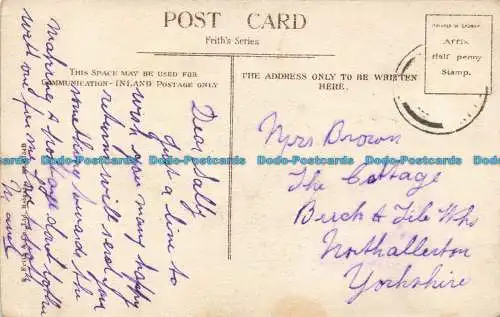 POST CARD
Frith's Series
THIS SPACE MAY BE USED FOR
COMMUNICATION - INLAND POSTAGE ONLY
THE ADDRESS ONLY TO BE WRITTEN
HERE.
Affix
Half penny
Stamp.
Dear Sally
Just a line to
wish you many happy
returns will send you
something towards the
making a
with me for
Mrs Brown
The Cottage
Northallerton
Yorkshire
Dodo-Postcards Dodo-Postcards Dodo-Postcards Dodo-Postcards Dodo-Postcards
Dodo-Postcards Dodo-Postcards Dodo-Postcards Dodo-Postcards Dodo-Postcards